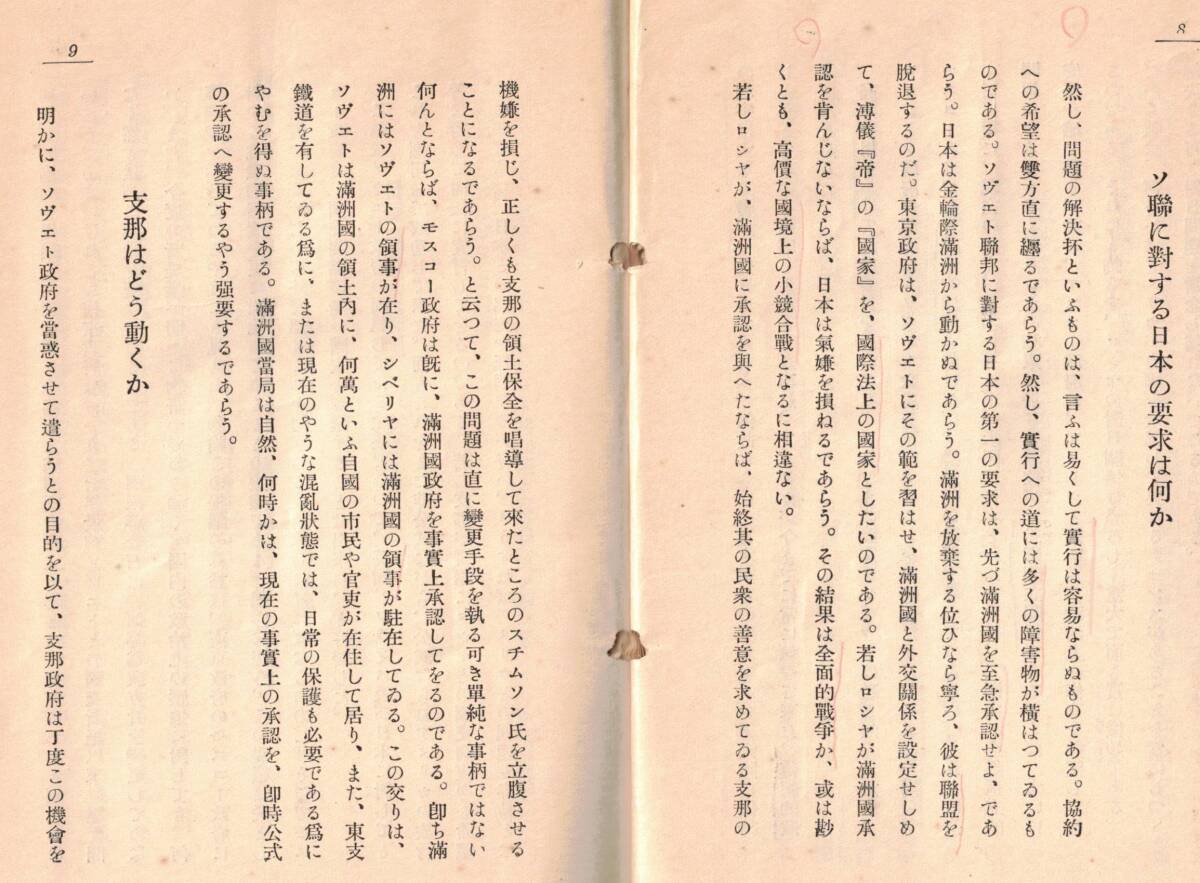 8
ソ聯に對する日本の要求は何か
然し、問題の解決杯といふものは、言ふは易くして實行は容易ならぬものである。協約
への希望は雙方直に纒るであらう。然し、實行への道には多くの障害物が橫はつてゐるも
のである。ソヴェト聯邦に對する日本の第一の要求は、先づ滿洲國を至急承認せよ、であ
らう。日本は金輪際滿洲から動かぬであらう。滿洲を放棄する位ひなら寧ろ、彼は聯盟を
脫退するのだ。東京政府は、ソヴェトにその範を習はせ、滿洲國と外交關係を設定せしめ
て、溥儀『帝』の『國家』を、國際法上の國家としたいのである。若しロシヤが滿洲國承
認を肯んじないならば、日本は氣嫌を損ねるであらう。その結果は全面的戰爭か、或は尠
くとも、高價な國境上の小競合戰となるに相違ない。
若しロシヤが、滿洲國に承認を與へたならば、始終其の民衆の善意を求めてゐる支那の
9
機嫌を損じ、正しくも支那の領土保全を唱導して來たところのスチムソン氏を立腹させる
ことになるであらう。と云つて、この問題は直に變更手段を執る可き單純な事柄ではない
何んとならば、モスコー政府は旣に、滿洲國政府を事實上承認してをるのである。卽ち滿
洲にはソヴェトの領事が在り、シベリヤには滿洲國の領事が駐在してゐる。この交りは、
ソヴェトは滿洲國の領土內に、何萬といふ自國の市民や官吏が在住して居り、また、東支
鐵道を有してゐる爲に、または現在のやうな混亂狀態では、日常の保護も必要である爲に
やむを得ぬ事柄である。滿洲國當局は自然、何時かは、現在の事實上の承認を、卽時公式
の承認へ變更するやう强要するであらう。
支那はどう動くか
明かに、ソヴェト政府を當惑させて遣らうとの目的を以て、支那政府は丁度この機會を